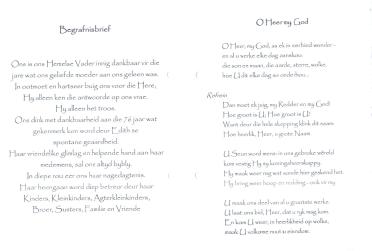 Begrafnisbrief
Ons is ons Hemelse Vader innig dankbaar vir die
jare wat ons geliefde moeder aan ons geleen was.
In ootmoet en hartseer buig ons voor die Here,
Hy alleen ken die antwoorde op ons vrae.
Hy alleen het troos.
Ons dink met dankbaarheid aan die 76 jaar wat
gekenmerk kon word deur Edith se
spontane geaardheid.
Haar vriendelike glimlag en helpende hand aan haar
medemens, sal ons altyd bybly.
In diepe rou eer ons haar nagedagtenis.
Haar heengaan word diep betreur deur haar
Kinders, Kleinkinders, Agterkleinkinders,
Broer, Susters, Familie en Vriende
O Heer my God
O Heer, my God, as ek in verbied wonder
en al u werke elke dag aanskou:
die son en maan, die aarde, sterre, wolke
hoe U dit elke dag so onderhou...
Refrein
Dan moet ek juig, my Redder en my God!
Hoe groot is U; Hoe groot is U!
Want deur die hele skepping klink dit saam:
Hoe heerlik, Heer, u grote Naam
U Seun word mens in ons gebroke wêreld
kom vestig Hy sy koningsheerskappy.
Hy maak weer reg wat sonde hier geskend het.
Hy bring weer hoop en redding - ook vir my.
U maak ons deel van al u grootste werke.
U laat ons bid, Heer, dat u ryk mag kom.
En kom U weer, in heerlikheid op wolke,
maak U volkome nuut u eiendom.